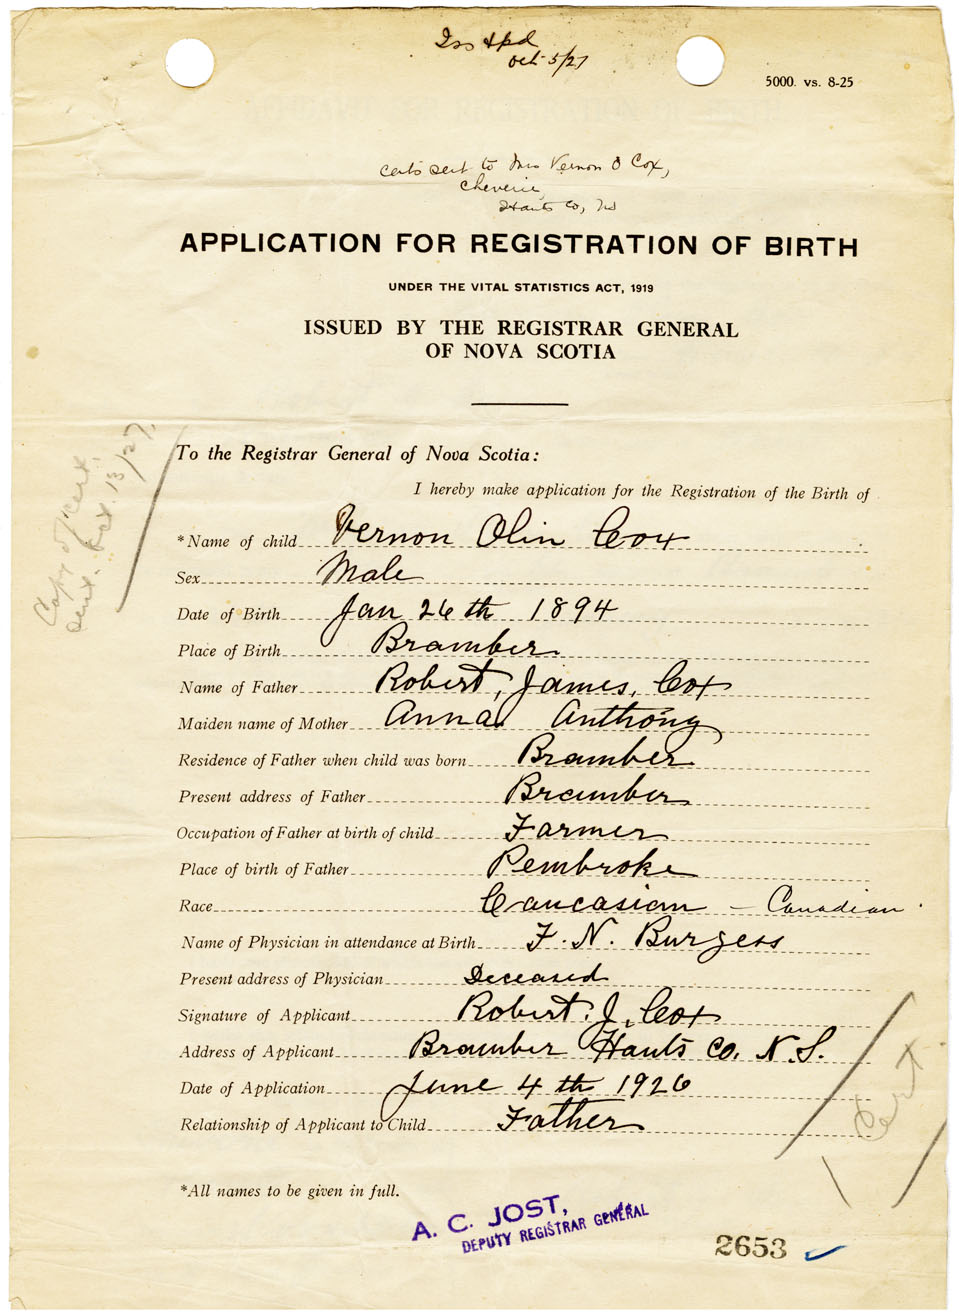 Iss & pd
Oct 5/27
5000. vs. 8-25
certs sent to Mrs Vernon O Cox,
Cheverie,
Hants Co, NS
APPLICATION FOR REGISTRATION OF BIRTH
UNDER THE VITAL STATISTICS ACT, 1919
ISSUED BY THE REGISTRAR GENERAL
OF NOVA SCOTIA
Copy of cert.
sent. Oct. 13/27.
To the Registrar General of Nova Scotia:
I hereby make application for the Registration of the Birth of
*Name of child Vernon Olin Cox
Sex Male
Date of Birth Jan 26th 1894
Place of Birth Bramber
Name of Father Robert, James, Cox
Maiden name of Mother Anna Anthony
Residence of Father when child was born Bramber
Present address of Father Bramber
Occupation of Father at birth of child Farmer
Place of birth of Father Pembroke
Race Caucasian — Canadian
Name of Physician in attendance at Birth F. N. Burgess
Present address of Physician Deceased
Signature of Applicant Robert. J. Cox
Address of Applicant Bramber Hants Co. N.S.
Date of Application June 4th 1926
Relationship of Applicant to Child Father
1 Cert
*All names to be given in full.
A. C. JOST,
DEPUTY REGISTRAR GENERAL
2653